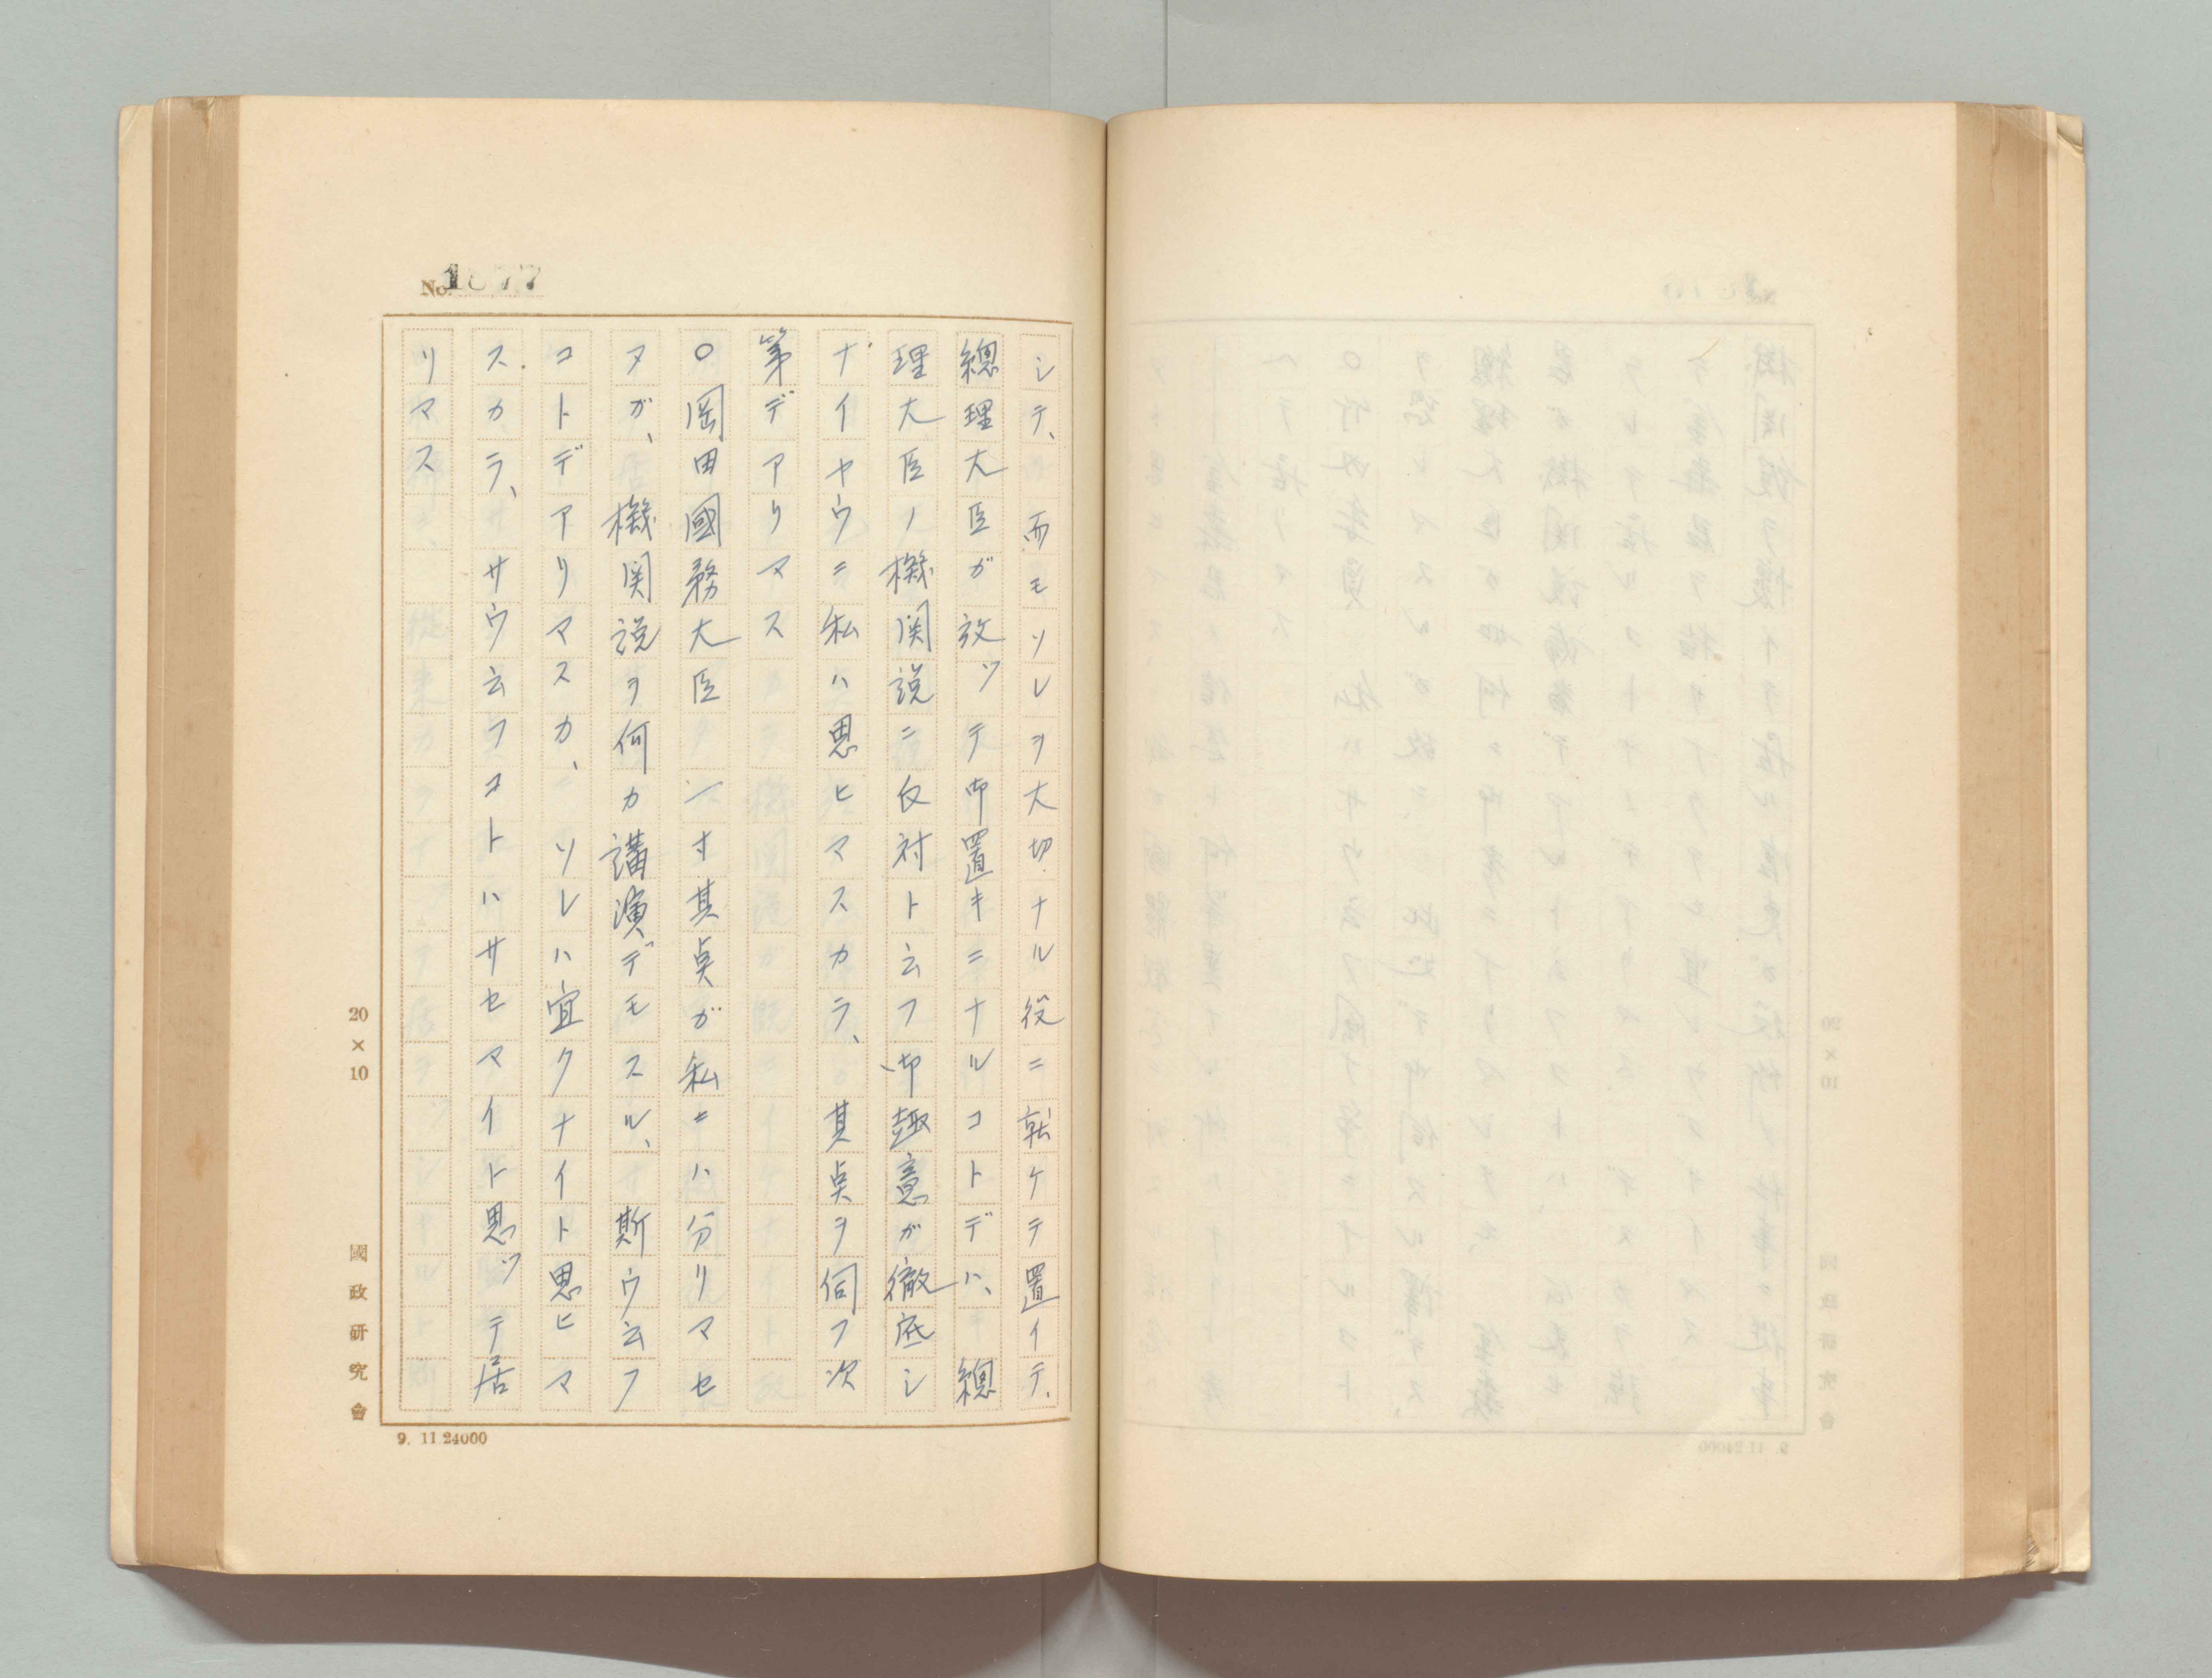 No. 1877
シテ、而モソレヲ大切ナル役ニ就ケテ置イテ、
總理大臣ガ放ッテ御置キニナルコトデハ、總
理大臣ノ機関説ニ反対ト云フ御趣意ガ徹底シ
ナイヤウニ私ハ思ヒマスカラ、其点ヲ伺フ次
第デアリマス
〇岡田國務大臣 一寸其点ガ私ニハ分リマセ
ヌガ、機関説ヲ何カ講演デモスル、斯ウ云フ
コトデアリマスカ、ソレハ宜クナイト思ヒマ
スカラ、サウ云フコトハサセマイト思ッテ居
リマス
20×10
國政研究會
9. 11 24000